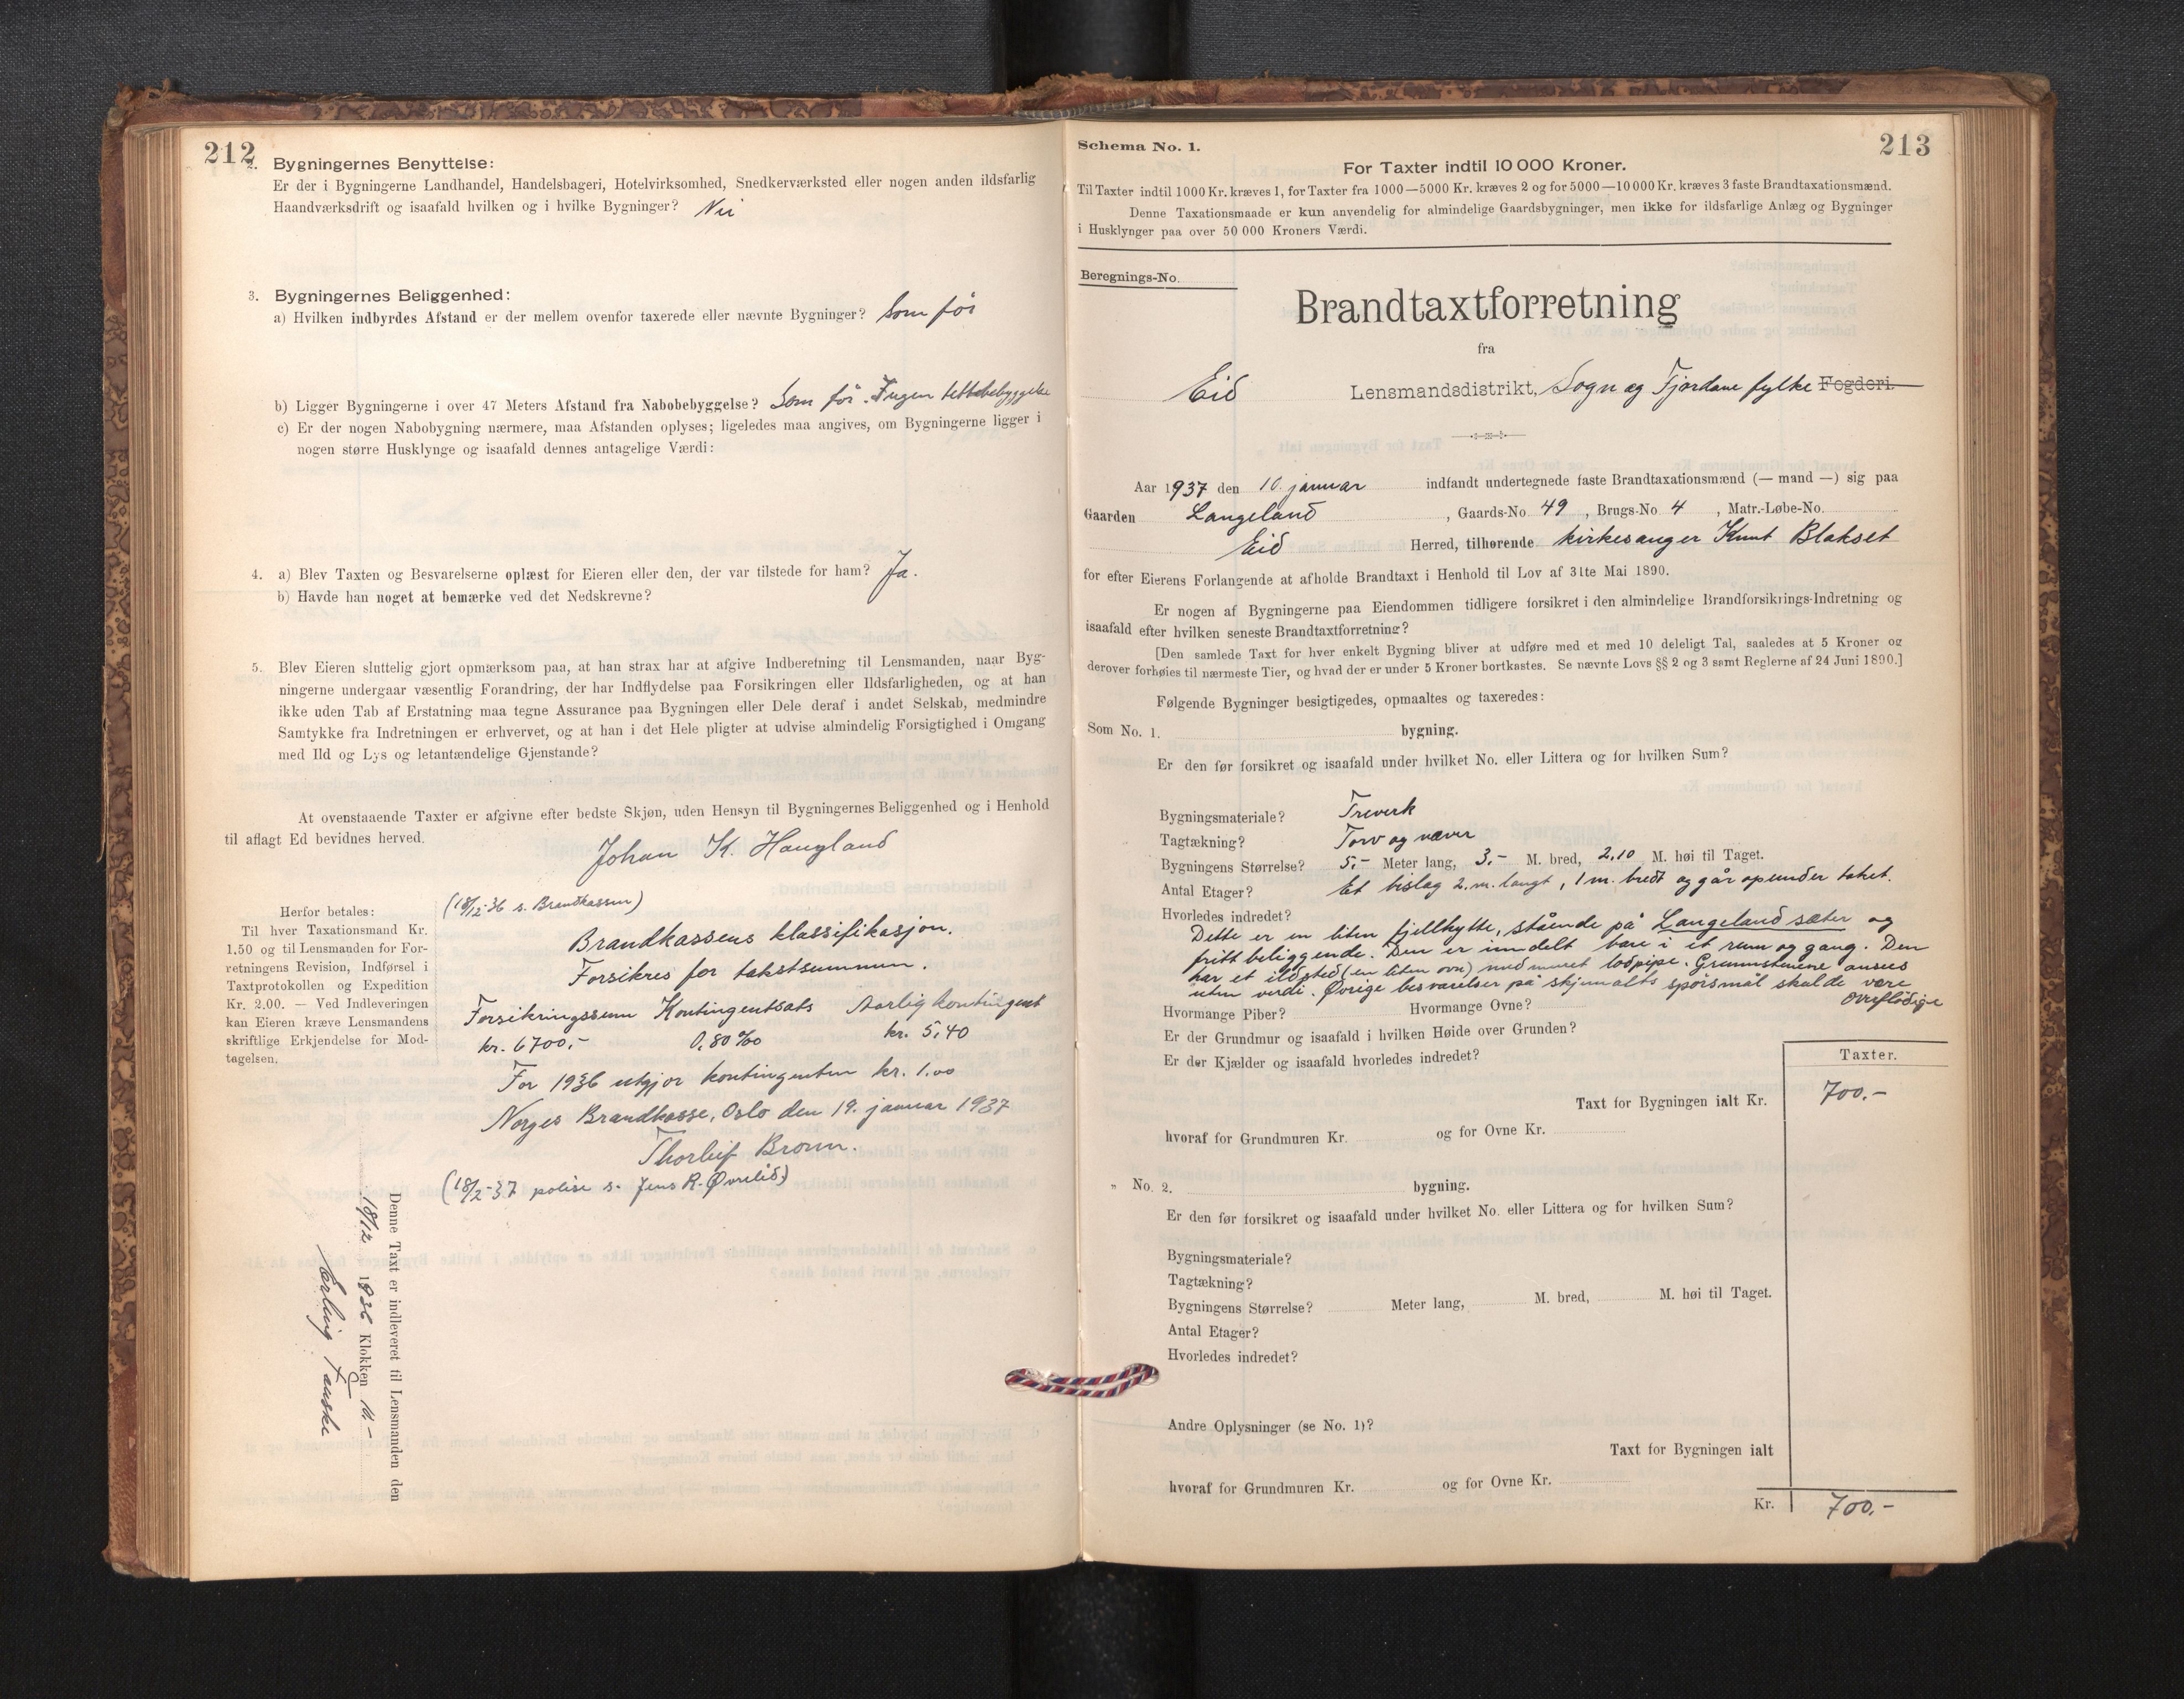 212
2. Bygningernes Benyttelse:
Er der i Bygningerne Landhandel, Handelsbageri, Hotelvirksomhed, Snedkerværksted eller nogen anden ildsfarlig
Haandværksdrift og isaafald hvilken og i hvilke Bygninger? Nei
3. Bygningernes Beliggenhed:
a) Hvilken indbyrdes Afstand er der mellem ovenfor taxerede eller nævnte Bygninger? Som før
b) Ligger Bygningerne i over 47 Meters Afstand fra Nabobebyggelse? Som før. Ingen tettbebyggelse
c) Er der nogen Nabobygning nærmere, maa Afstanden oplyses; ligeledes maa angives, om Bygningerne ligger i
nogen større Husklynge og isaafald dennes antagelige Værdi:
4. a) Blev Taxten og Besvarelserne oplæst for Eieren eller den, der var tilstede for ham? Ja.
b) Havde han noget at bemærke ved det Nedskrevne?
5. Blev Eieren sluttelig gjort opmærksom paa, at han strax har at afgive Indberetning til Lensmanden, naar Byg-
ningerne undergaar væsentlig Forandring, der har Indflydelse paa Forsikringen eller Ildsfarligheden, og at han
ikke uden Tab af Erstatning maa tegne Assurance paa Bygningen eller Dele deraf i andet Selskab, medmindre
Samtykke fra Indretningen er erhvervet, og at han i det Hele pligter at udvise almindelig Forsigtighed i Omgang
med Ild og Lys og letantændelige Gjenstande?
At ovenstaaende Taxter er afgivne efter bedste Skjøn, uden Hensyn til Bygningernes Beliggenhed og i Henhold
til aflagt Ed bevidnes herved.
Johan K. Haugland
Herfor betales:
Til hver Taxationsmand Kr.
1.50 og til Lensmanden for For-
retningens Revision, Indførsel i
Taxtprotokollen og Expedition
Kr. 2.00. — Ved Indleveringen
kan Eieren kræve Lensmandens
skriftlige Erkjendelse for Mod-
tagelsen.
(18/12-36 s. Brandkassen)
Brandkassens klassifikasjon.
Forsikres for takstsummen.
Forsikringssum Kontingentsats Aarlig kontingent
kr. 6700,- 0,80 ‰ kr. 5,40
For 1936 utgjør kontingenten kr. 1.00
Norges Brandkasse, Oslo den 19. januar 1937
Thorleif Broun.
(18/2-37 polise s. Jens R. Øvrelid)
Denne Taxt er indleveret til Lensmanden den
18/12 1936 Klokken 14.-
Erling
213
Schema No. 1.
For Taxter indtil 10 000 Kroner.
Til Taxter indtil 1000 Kr. kræves 1, for Taxter fra 1000—5000 Kr. kræves 2 og for 5000—10 000 Kr. kræves 3 faste Brandtaxationsmænd.
Denne Taxationsmaade er kun anvendelig for almindelige Gaardsbygninger, men ikke for ildsfarlige Anlæg og Bygninger
i Husklynger paa over 50 000 Kroners Værdi.
Beregnings-No.
Brandtaxtforretning
fra
Eid Lensmandsdistrikt, Sogn og Fjordane fylke Fogderi.
Aar 1937 den 10. januar indfandt undertegnede faste Brandtaxationsmænd (— mand —) sig paa
Gaarden Langeland, Gaards-No. 49, Brugs-No. 4, Matr.-Løbe-No.
Eid Herred, tilhørende kirkesanger Knut Blakset
for efter Eierens Forlangende at afholde Brandtaxt i Henhold til Lov af 31te Mai 1890.
Er nogen af Bygningerne paa Eiendommen tidligere forsikret i den almindelige Brandforsikrings-Indretning og
isaafald efter hvilken seneste Brandtaxtforretning?
[Den samlede Taxt for hver enkelt Bygning bliver at udføre med et med 10 deleligt Tal, saaledes at 5 Kroner og
derover forhøies til nærmeste Tier, og hvad der er under 5 Kroner bortkastes. Se nævnte Lovs §§ 2 og 3 samt Reglerne af 24 Juni 1890.]
Følgende Bygninger besigtigedes, opmaaltes og taxeredes:
Som No. 1. bygning.
Er den før forsikret og isaafald under hvilket No. eller Littera og for hvilken Sum?
Bygningsmateriale? Treverk
Tagtækning? Torv og næver
Bygningens Størrelse? 5,- Meter lang, 3,- M. bred, 2,10 M. høi til Taget.
Antal Etager? Et bislag 2.m. langt, 1 m. bredt og går opunder taket.
Hvorledes indredet?
Dette er en liten fjellhytte, stående på Langeland sæter og
fritt beliggende. Den er inndelt bare i et rum og gang. Den
har et ildsted (en liten ovn) med muret lodpipe. Grunnstenene ansees
uten verdi. Øvrige besvarelser på skjemaets spørsmål skulde være
overflødige
Hvormange Piber? Hvormange Ovne?
Er der Grundmur og isaafald i hvilken Høide over Grunden?
Er der Kjælder og isaafald hvorledes indredet?
Taxter.
Taxt for Bygningen ialt Kr. 700.-
hvoraf for Grundmuren Kr. og for Ovne Kr.
„ No. 2. bygning.
Er den før forsikret og isaafald under hvilket No. eller Littera og for hvilken Sum?
Bygningsmateriale?
Tagtækning?
Bygningens Størrelse? Meter lang, M. bred, M. høi til Taget.
Antal Etager?
Hvorledes indredet?
Andre Oplysninger (se No. 1)?
Taxt for Bygningen ialt
hvoraf for Grundmuren Kr. og for Ovne Kr.
Kr. 700.-